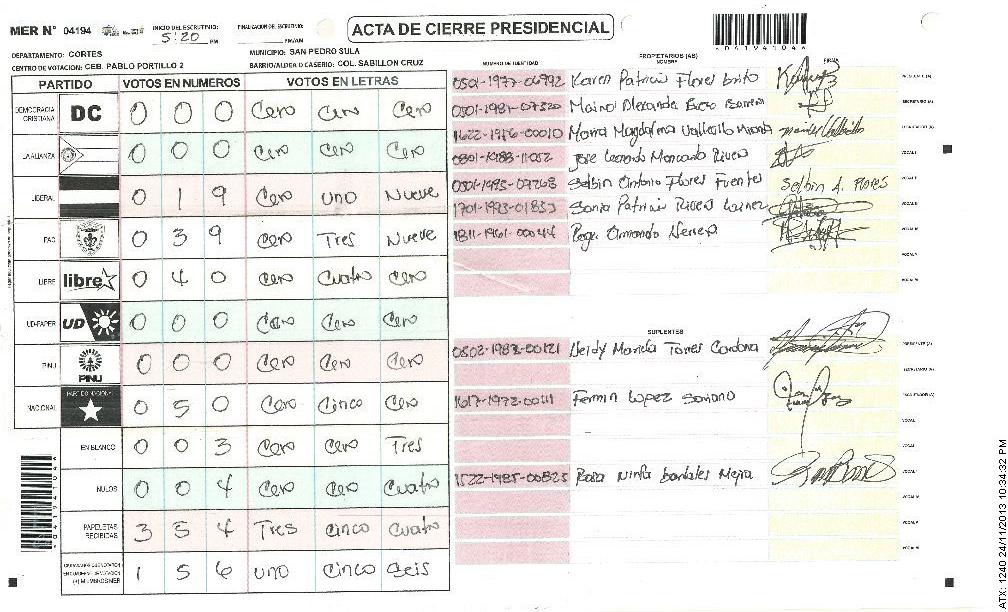 MER Nº 04194
INICIO DEL ESCRUTINIO: 5:20 PM
FINALIZACION DEL ESCRUTINIO: AM/PM
ACTA DE CIERRE PRESIDENCIAL
DEPARTAMENTO: CORTES
MUNICIPIO: SAN PEDRO SULA
CENTRO DE VOTACION: CEB. PABLO PORTILLO 2
BARRIO/ALDEA O CASERIO: COL. SABILLON CRUZ
PARTIDO VOTOS EN NUMEROS VOTOS EN LETRAS
DEMOCRACIA CRISTIANA DC 0 0 0 Cero Cero Cero
LA ALIANZA 0 0 0 Cero Cero Cero
LIBERAL 0 1 9 Cero uno Nueve
PAC 0 3 9 Cero Tres Nueve
LIBRE libre 0 4 0 Cero Cuatro Cero
UD-FAPER UD 0 0 0 Cero Cero Cero
PINU PINU 0 0 0 Cero Cero Cero
NACIONAL PARTIDO NACIONAL 0 5 0 Cero Cinco Cero
EN BLANCO 0 0 3 Cero Cero Tres
NULOS 0 0 4 Cero Cero Cuatro
PAPELETAS RECIBIDAS 3 5 4 Tres cinco Cuatro
1 5 6 uno Cinco Seis
NUMERO DE IDENTIDAD
PROPIETARIOS (AS)
NOMBRE
FIRMA
0501-1977-06992 Karen Patricia Flores Brito
0501-1981-07320
1622-1976-00010 Maria Magdalena Vallecillo
Jose Leonardo Moncada Rivera
0501-1993-07268 Selbin Antonio Flores Fuentes Selbin A. Flores
1701-1993-01853 Sonia Patricia Rivera
1811-1961-00044 Roger Armando Herrera
SUPLENTES
0502-1983-00121 Heidy Mariela Torres Cardona
1617-1972-00111 Fermin Lopez Soriano
1522-1985-00825 Rosa Ninfa Mejia
04194104
ATX: 1240 24/11/2013 10:34:32 PM